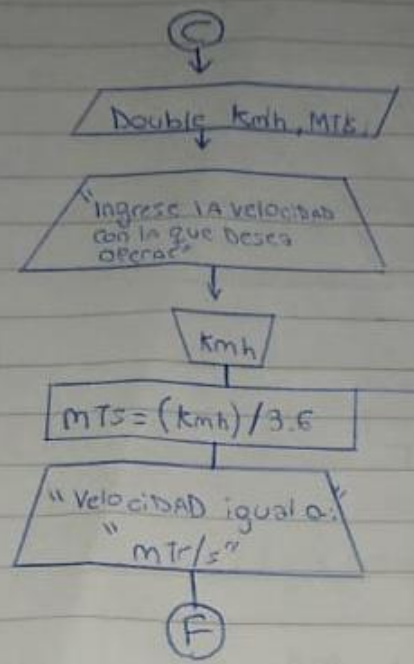 C
Double Kmh, MTS
"Ingrese LA velocidad
con la que Desea
operar"
Kmh
MTS = (Kmh) / 3.6
"VelociDAD igual a:"
" mTr/s"
F